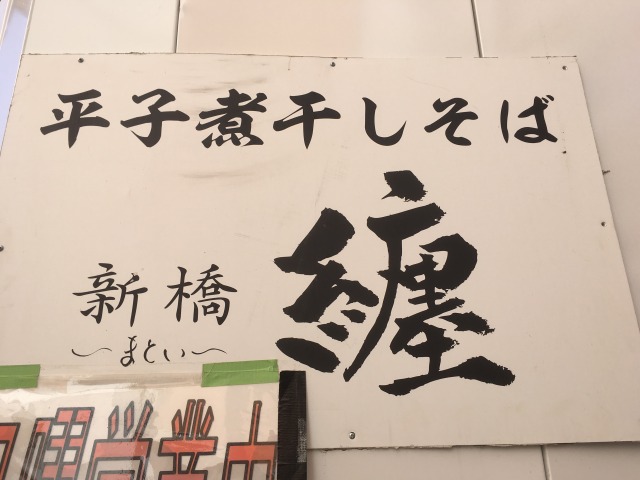 平子煮干しそば
新橋 纏
～まとい～
営業中